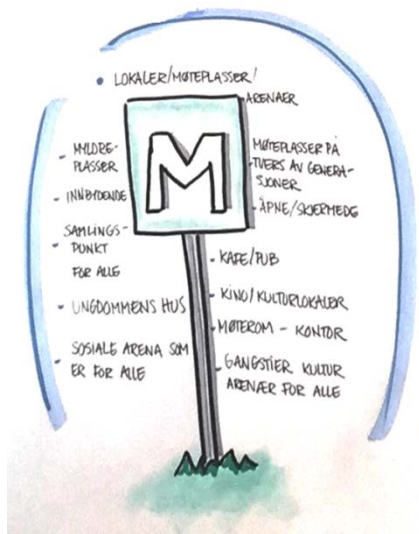 • LOKALER/MØTEPLASSER/
ARENAER
M
- MYLDRE-
PLASSER
- INNBYDENDE
SAMLINGS-
- PUNKT
FOR ALLE
- UNGDOMMENS HUS
- SOSIALE ARENA SOM
ER FOR ALLE
MØTEPLASSER PÅ
- TVERS AV GENERA-
SJONER
- ÅPNE/SKJERMEDE
- KAFE/PUB
- KINO/KULTURLOKALER
- MØTEROM - KONTOR
- GANGSTIER KULTUR
ARENAER FOR ALLE